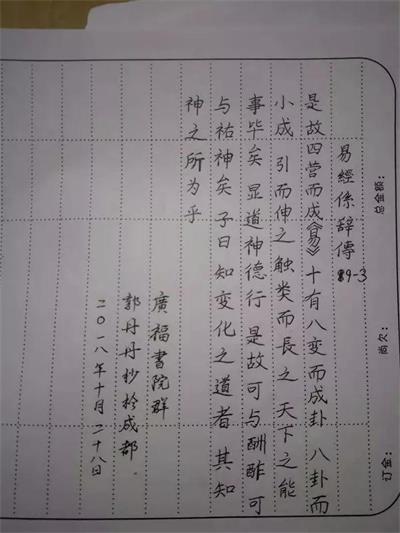 总金额：
尚欠：
订金：
易經係辞傳 89-3
是故四营而成《易》十有八变而成卦 八卦而
小成 引而伸之 触类而長之 天下之能
事毕矣 显道神德行 是故可与酬酢 可
与祐神矣 子曰 知变化之道者 其知
神之所为乎
廣福書院群
郭丹丹抄於成都.
二〇一八年十月二十八日